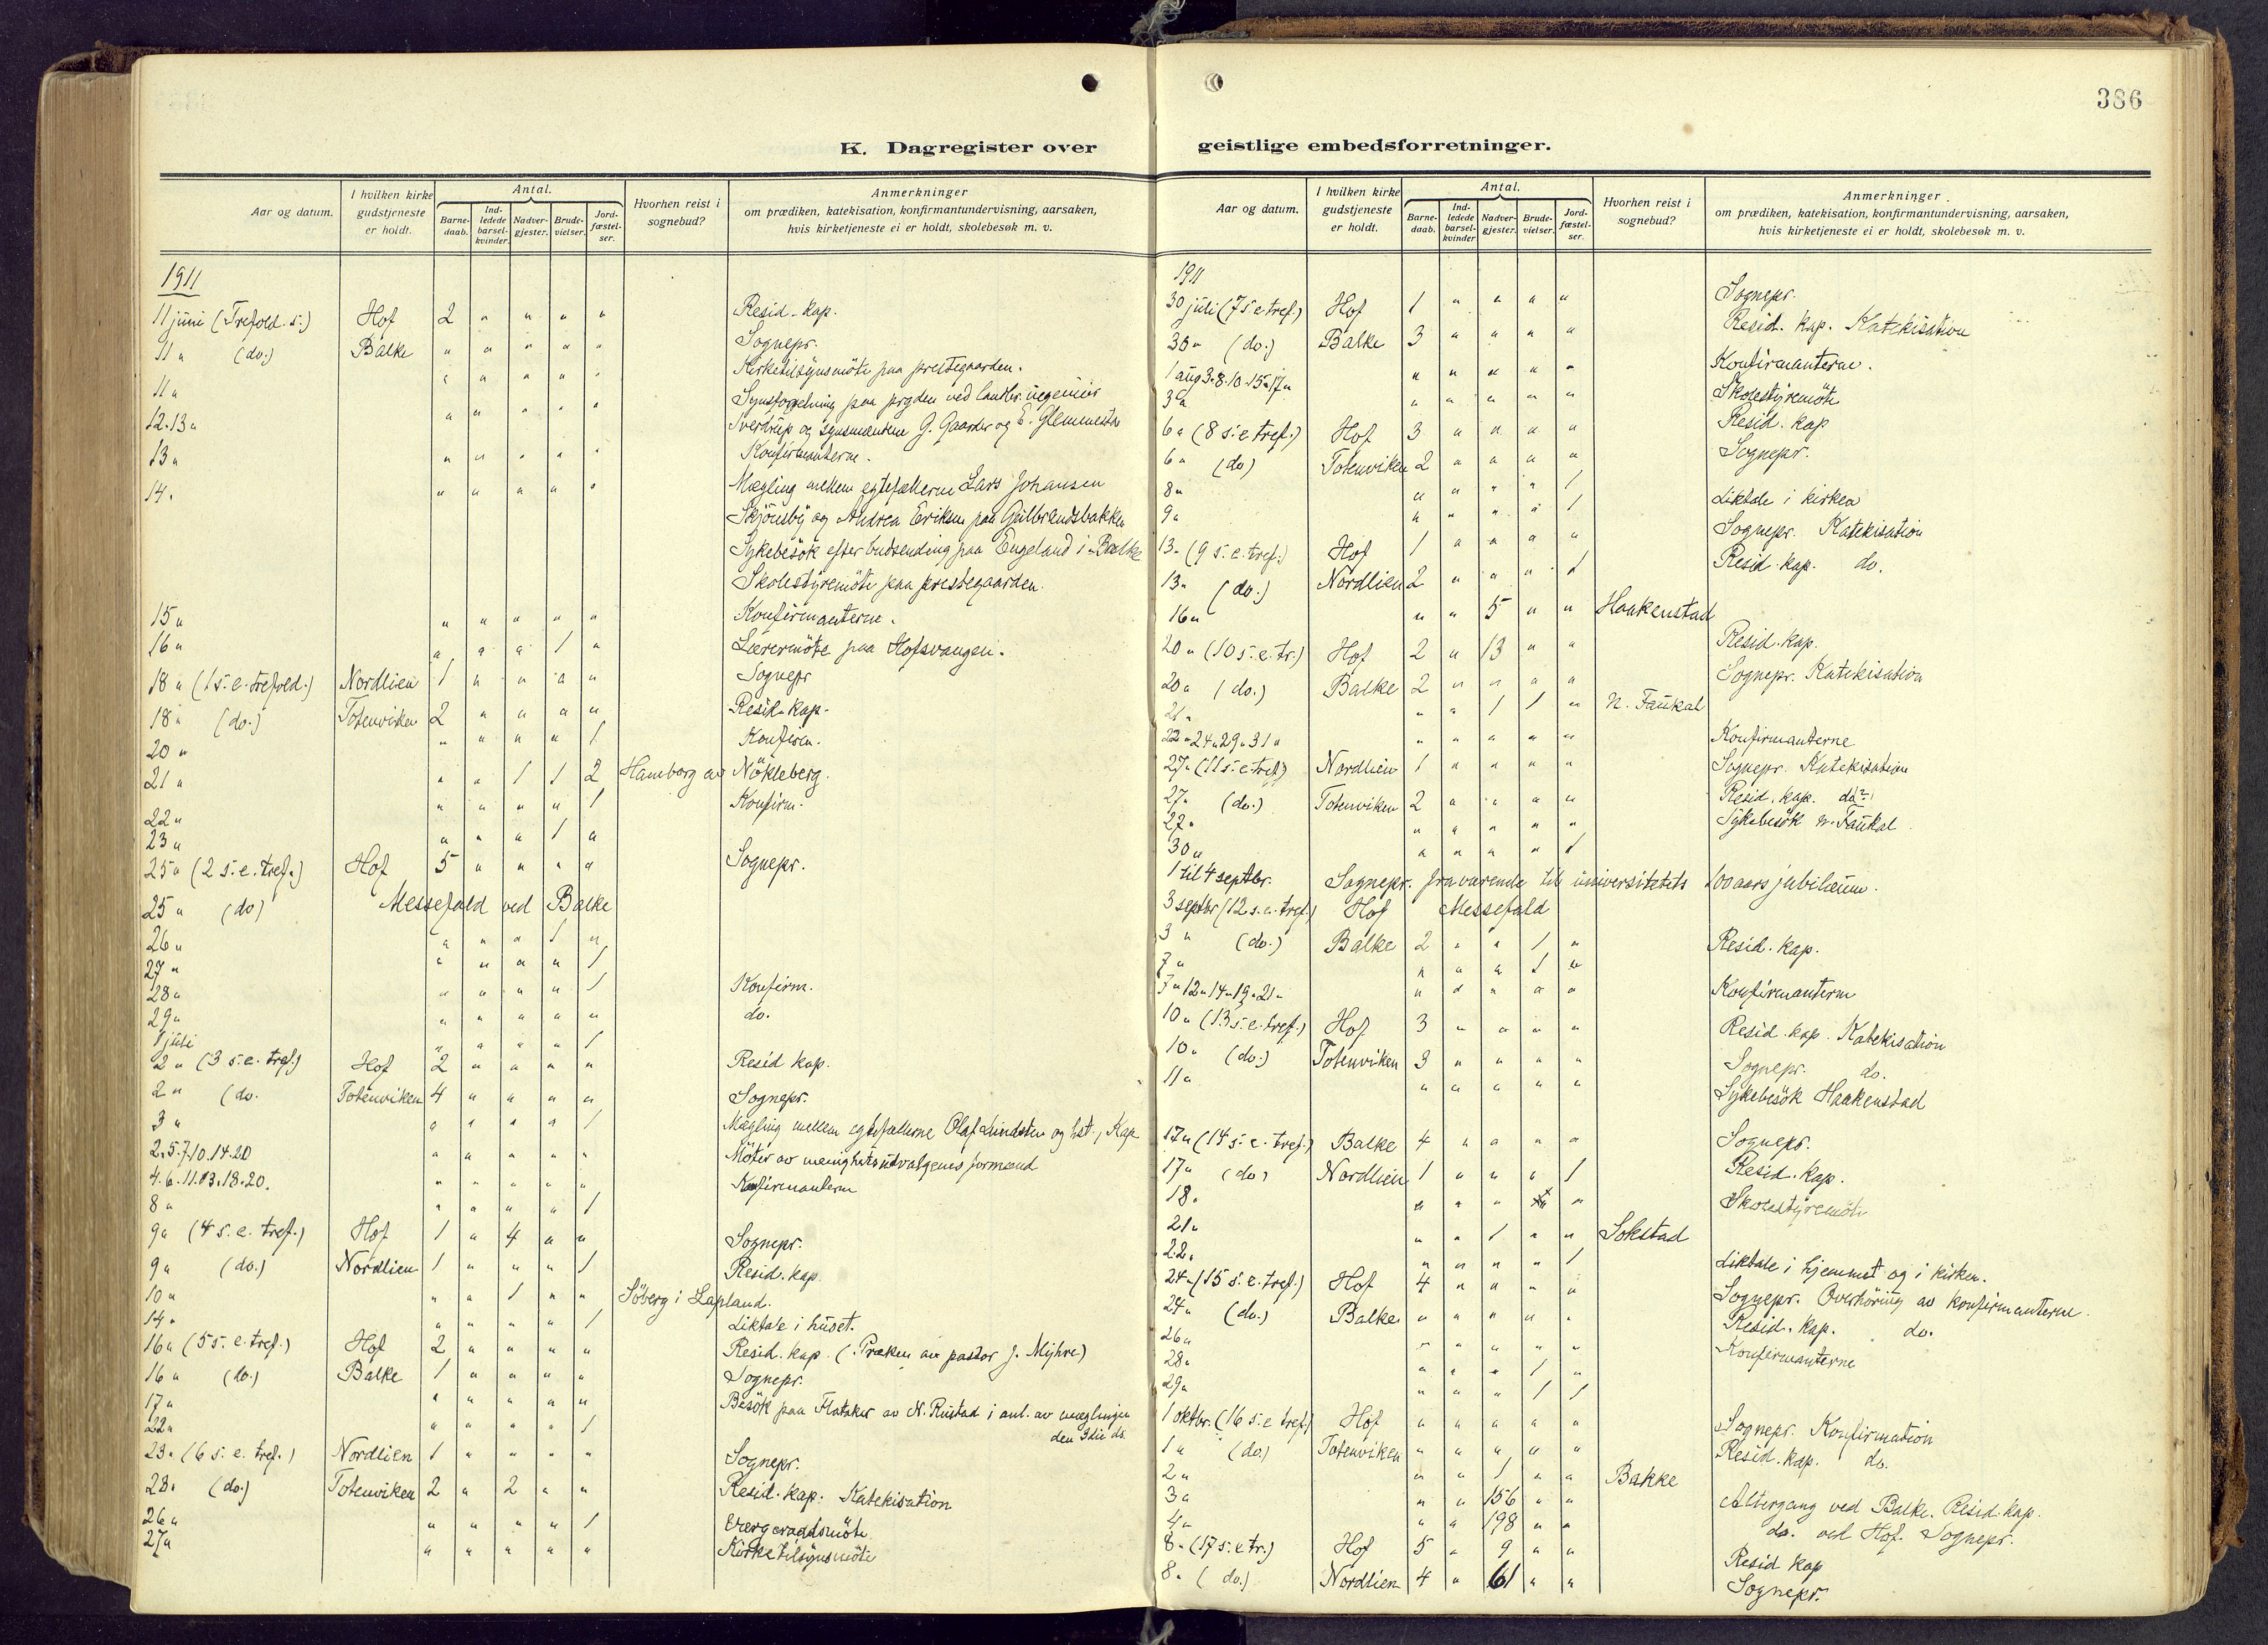 386
K. Dagregister over geistlige embedsforretninger.
Aar og datum. I hvilken kirke gudstjeneste er holdt. Antal. Barnedaab. Indledede barselkvinder. Nadvergjester. Brudevielser. Jordfæstelser. Hvorhen reist i sognebud? Anmerkninger om prædiken, katekisation, konfirmantundervisning, aarsaken, hvis kirketjeneste ei er holdt, skolebesøk m. v.
1911
11 juni (Trefold. s.) Hof 2 " " " " Resid. kap.
11 " (do.) Balke " " " " " Sognepr.
11 " " " " " " Kirketilsynsmöte paa prestegaarden.
12. 13 " " " " " " Synsforretning paa prgden ved landbr. ingeniör
Sverdrup og synsmændene J. Gaarder og E. Glemmestad
13 " " " " " " Konfirmanterne.
14. " " " " " Mægling mellem egtefællerne Lars Johansen
Skjönsby og Andrea Eriksen paa Gulbrandsbakken
Sykebesök efter budsending paa Engeland i Balke
Skolestyremöte paa prestegaarden.
15 " " " " " " Konfirmanterne.
16 " " " " 1 " Lærermöte paa Hofsvangen.
18 " (1 s. e. trefold.) Nordlien 1 " " " " Sognepr
18 " (do.) Totenviken 2 " " " " Resid. kap.
20 " " " " " 1 Konfirm.
21 " " " 1 1 2 Hamborg av Nökleberg.
22 " " " " " 1 Konfirm.
23 " " " " 1 "
25 " (2 s. e. tref.) Hof 5 " " " " Sognepr.
25 " (do) Messefald ved Balke
26 " " " " 1 "
27 " " " " " 1
28 " " " " " 1 Konfirm.
29 " " " " " " do.
1 juli " " " " 1
2 " (3 s. e. tref) Hof 2 " " " " Resid kap.
2 " (do. Totenviken 4 " " " " Sognepr.
3 " " " " " 1 Mægling mellem egtefællerne Olaf Lindsten og hst., Kap
2. 5. 7. 10. 14. 20 " " " " " Möter av menighetsutvalgenes formænd
4. 6. 11. 13. 18. 20. " " " " " Konfirmanterne
8 " " " " " 1
9 " (4 s. e. tref.) Hof 1 " 4 " " Sognepr.
9 " (do.) Nordlien 1 " " " 1 Resid. kap.
10 " " " 1 " " Söberg i Lapland.
14 " " " " " 1 Liktale i huset.
16 " (5 s. e. tref.) Hof 2 " " " " Resid. kap. (Præken av pastor J. Myhre)
16 " (do.) Balke 1 " " " " Sognepr.
17 " " " " " " Besök paa Flataker av N. Rustad i anl. av mæglingen
22 " " " " " 1 den 3die ds.
23 " (6 s. e. tref.) Nordlien 1 " " " " Sognepr.
23 " (do.) Totenviken 2 " 2 " " Resid. kap. Katekisation
26 " " " " " 1 Vergeraadsmöte
27 " " " " " " Kirketilsynsmöte
Aar og datum. I hvilken kirke gudstjeneste er holdt. Antal. Barnedaab. Indledede barselkvinder Nadvergjester. Brudevielser. Jordfæstelser. Hvorhen reist i sognebud? Anmerkninger. om prædiken, katekisation, konfirmantundervisning, aarsaken, hvis kirketjeneste ei er holdt, skolebesøk m. v.
1911
30 juli (7 s. e tref.) Hof 1 " " " " Sognepr.
30 " (do.) Balke 3 " " " " Resid. kap. Katekisation
1 aug 3. 8. 10. 15. 17 " " " " " " Konfirmanterne.
3 " " " " " " Skolestyremöte
6 " (8 s. e tref.) Hof 3 " " " " Resid. kap
6 " (do) Totenviken 2 " " " " Sognepr.
8 " " " " " 1
9 " " " " " 1 Liktale i kirken
13 " (9 s. e. tref.) Hof 1 " " " " Sognepr. Katekisation
13 " (do.) Nordlien 2 " " " 1 Resid. kap. do.
16 " " " 5 " " Haakenstad
20 " (10 s. e. tr.) Hof 2 " 13 " " Resid. kap.
20 " (do.) Balke 2 " " " " Sognepr. Katekisation
21 " " " 1 1 " N. Faukal
22 " 24 " 29 " 31 " " " " " " Konfirmanterne
27 " (11 s. e tref) Nordlien 1 " " " " Sognepr. Katekisation
27 " (do.) Totenviken 2 " " " " Resid. kap. do
27 " " " " " " Sykebesök N. Faukal
30 " " " " " 1
1 til 4 septbr. Sognepr. fraværende til universitetets 100 aars jubilæum.
3 septbr (12 s. e. tref.) Hof Messefald
3 " (do.) Balke 2 " " 1 " Resid. kap.
7 " " " " 1 "
7 " 12 " 14 " 19 " 21 " " " " " " Konfirmanterne
10 " (13 s. e. tref.) Hof 3 " " " " Resid. kap. Katekisation
10 " (do.) Totenviken 3 " " " " Sognepr. do.
11 " " " " " " Sykebesök Haakenstad
17 " (14 s. e. tref.) Balke 4 " " " " Sognepr.
17 " (do) Nordlien 1 " " " 1 Resid. kap.
18 " " " " " Skolestyremöte
21 " " " 1 " " Sokstad
22 " " " " " 1 Liktale i hjemmet og i kirken.
24 " (15 s. e. tref.) Hof 4 " " " " Sognepr. Overhöring av konfirmanterne.
24 " (do.) Balke " " " " " Resid. kap. do.
26 " " " " " " Konfirmanterne
28 " " " " 1 "
29 " " " " 1 1
1 oktbr. (16 s. e tref) Hof " " " " " Sognepr. Konfirmation
1 " (do.) Totenviken " " " " " Resid. kap. do.
2 " " " 1 " " Bakke
3 " " " 156 " " Altergang ved Balke. Resid. kap.
4 " " " 198 " " do. ved Hof. Sognepr.
8 " (17 s. e tr.) Hof 5 " 9 " " Resid kap
8 " (do.) Nordlien 4 " 61 " " Sognepr.